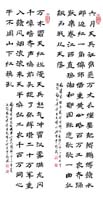 六月天兵征腐恶万丈长缨要把鲲鹏缚
赣水那边红一角偏师借重黄公略百万
工农齐踊跃席卷江西直捣湘和鄂国际
悲歌歌一曲狂飙为我从天落
万木霜天红烂漫天兵怒气冲霄汉雾满龙冈
千嶂暗齐声唤前头捉了张辉瓒二十万军重
入赣风烟滚滚来天半唤起工农千百万同心
干不周山下红旗乱